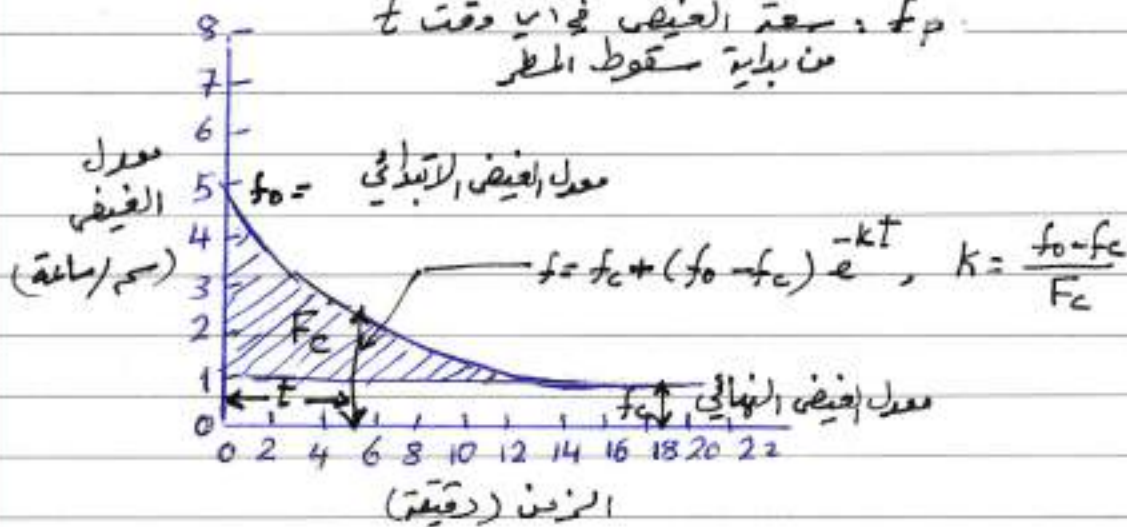 fp : سعة الغيض في اي وقت t
من بداية سقوط المطر
8
7
6
5
4
3
2
1
0
معدل
الغيض
(سم/ساعة)
f₀ =
معدل الغيض الابتدائي
f = fc + (f₀ - fc) e^-kt , k = (f₀ - fc) / Fc
Fc
t
fc
معدل الغيض النهائي
0 2 4 6 8 10 12 14 16 18 20 22
الزمن (دقيقة)